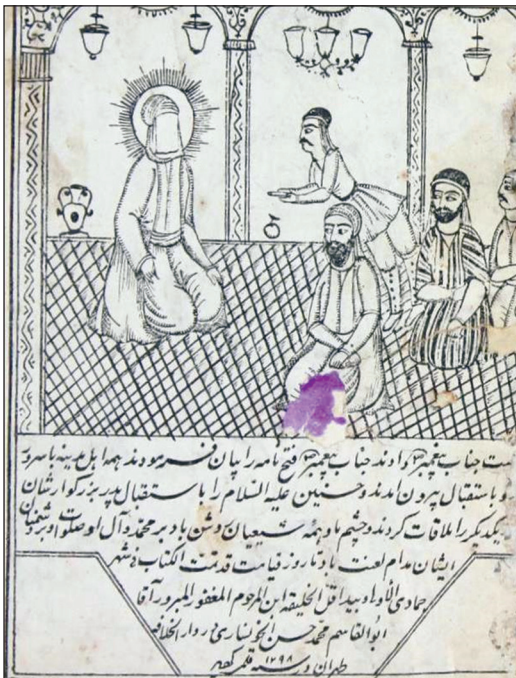 ست جناب پیغمبر دادند جناب پیغمبر فتح نامه را بیان فرمودند همه اهل مدینه با سرور
و با استقبال بیرون امدند و حسین علیه السلام را با ستقبال پدر بزرگوارشان
یکدیکر را ملاقات کردند و چشم ما و همهٔ شیعیان روشن باد بر محمد و آل او صلوات و بر دشمنان
ایشان مدام لعنت باد تا روز قیامت قد تمت الکتاب فی شهر
جمادی الأولا و بید اقل الخلیقه ابن المرحوم المغفور المبرور آقا
ابوالقاسم محمد حسن الخونساری در دار الخلافه
طهران در سنه ۱۲۹۸